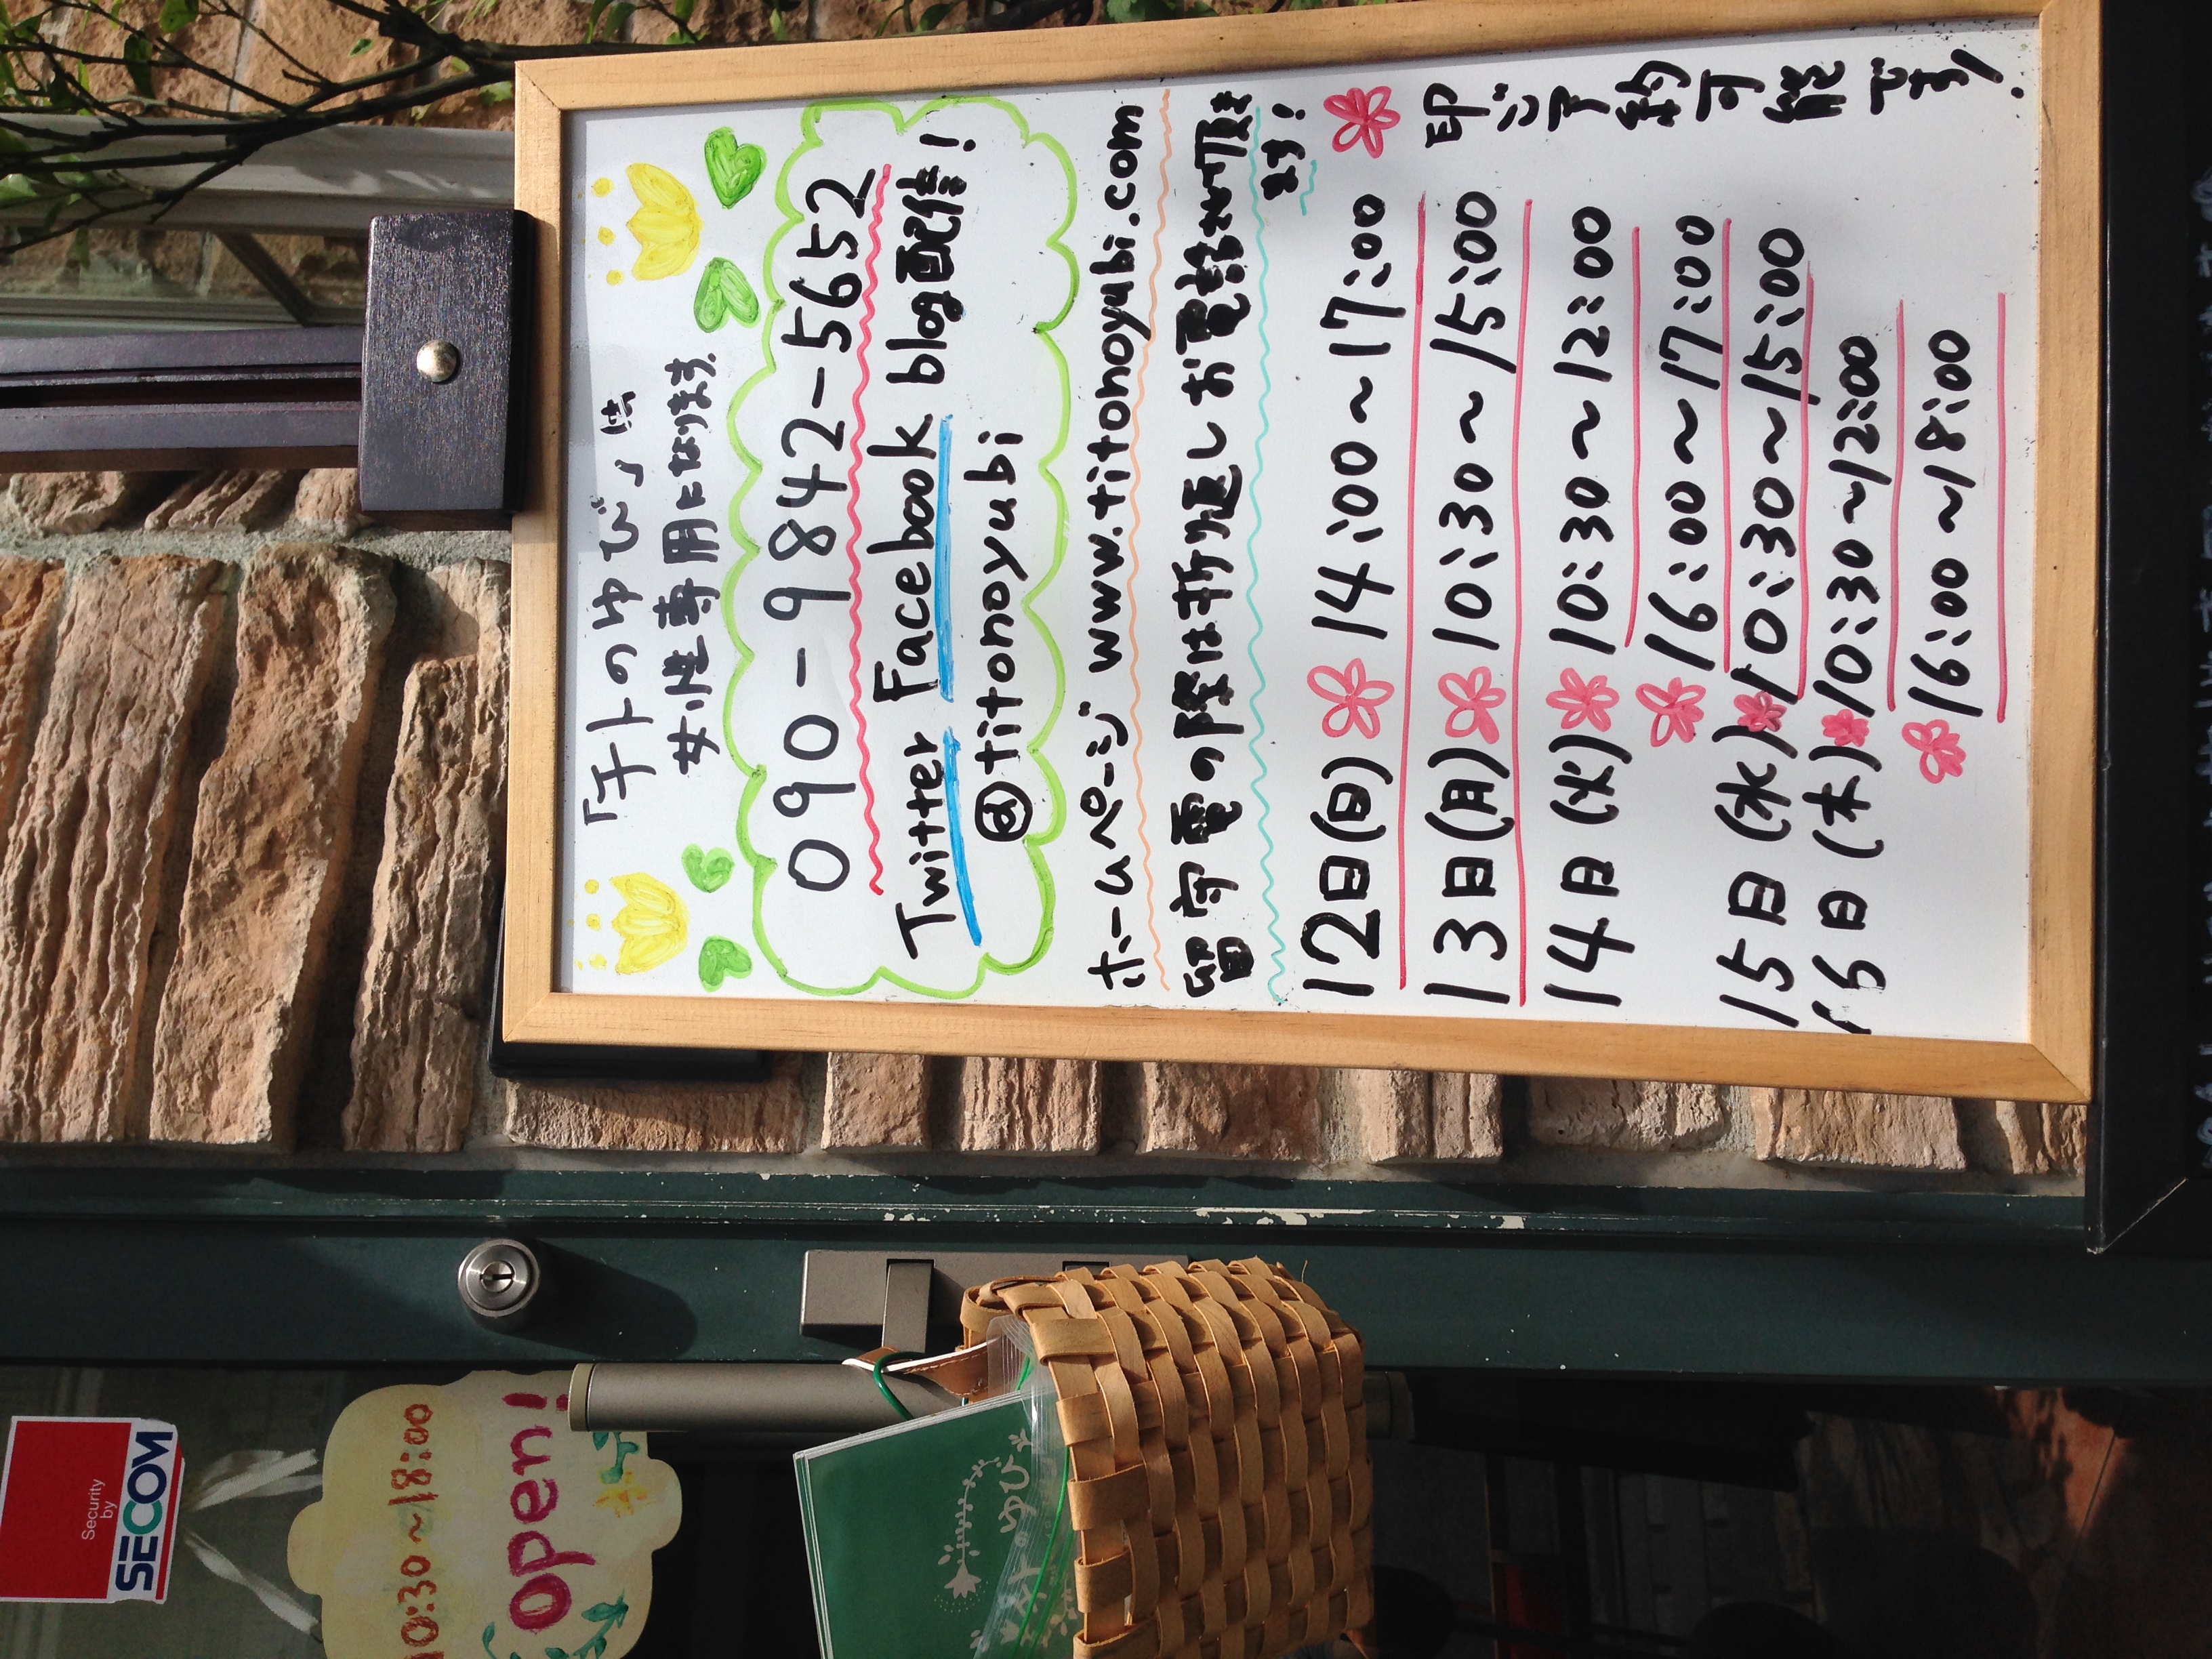 「チトのゆび」は
女性専用になります
090-9842-5652
Twitter Facebook blog配信!
@titonoyubi
ホームページ www.titonoyubi.com
留守電の際は折り返しお電話かけ直し
ます!
12日(日) 14:00〜17:00
13日(月) 10:30〜15:00
14日(火) 10:30〜12:00
16:00〜17:00
15日(水) 10:30〜15:00
16日(木) 10:30〜12:00
16:00〜18:00
印
ご予約可能です!
Security
by
SECOM
10:30〜18:00
open!
のゆび